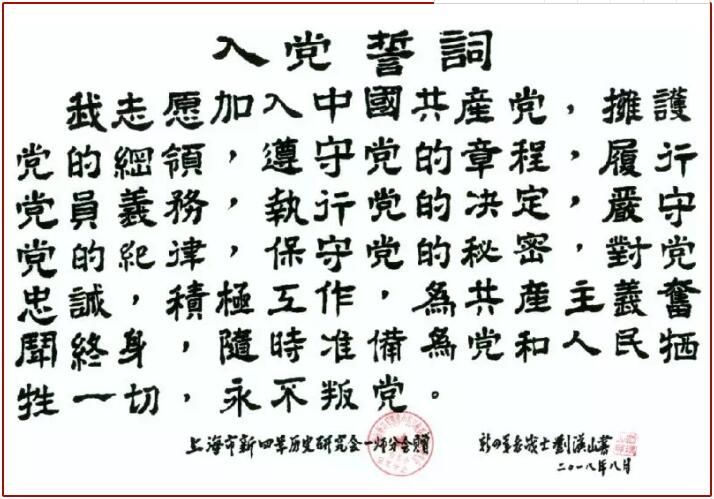 入党誓詞
我志愿加入中國共産党，擁護
党的綱領，遵守党的章程，履行
党員義務，執行党的决定，嚴守
党的紀律，保守党的秘密，對党
忠誠，積極工作，為共産主義奮
鬪終身，隨時准備為党和人民牺
牲一切，永不叛党。
上海市新四军历史研究会一师分会赠
新四军老战士劉漢山書
二〇一八年八月